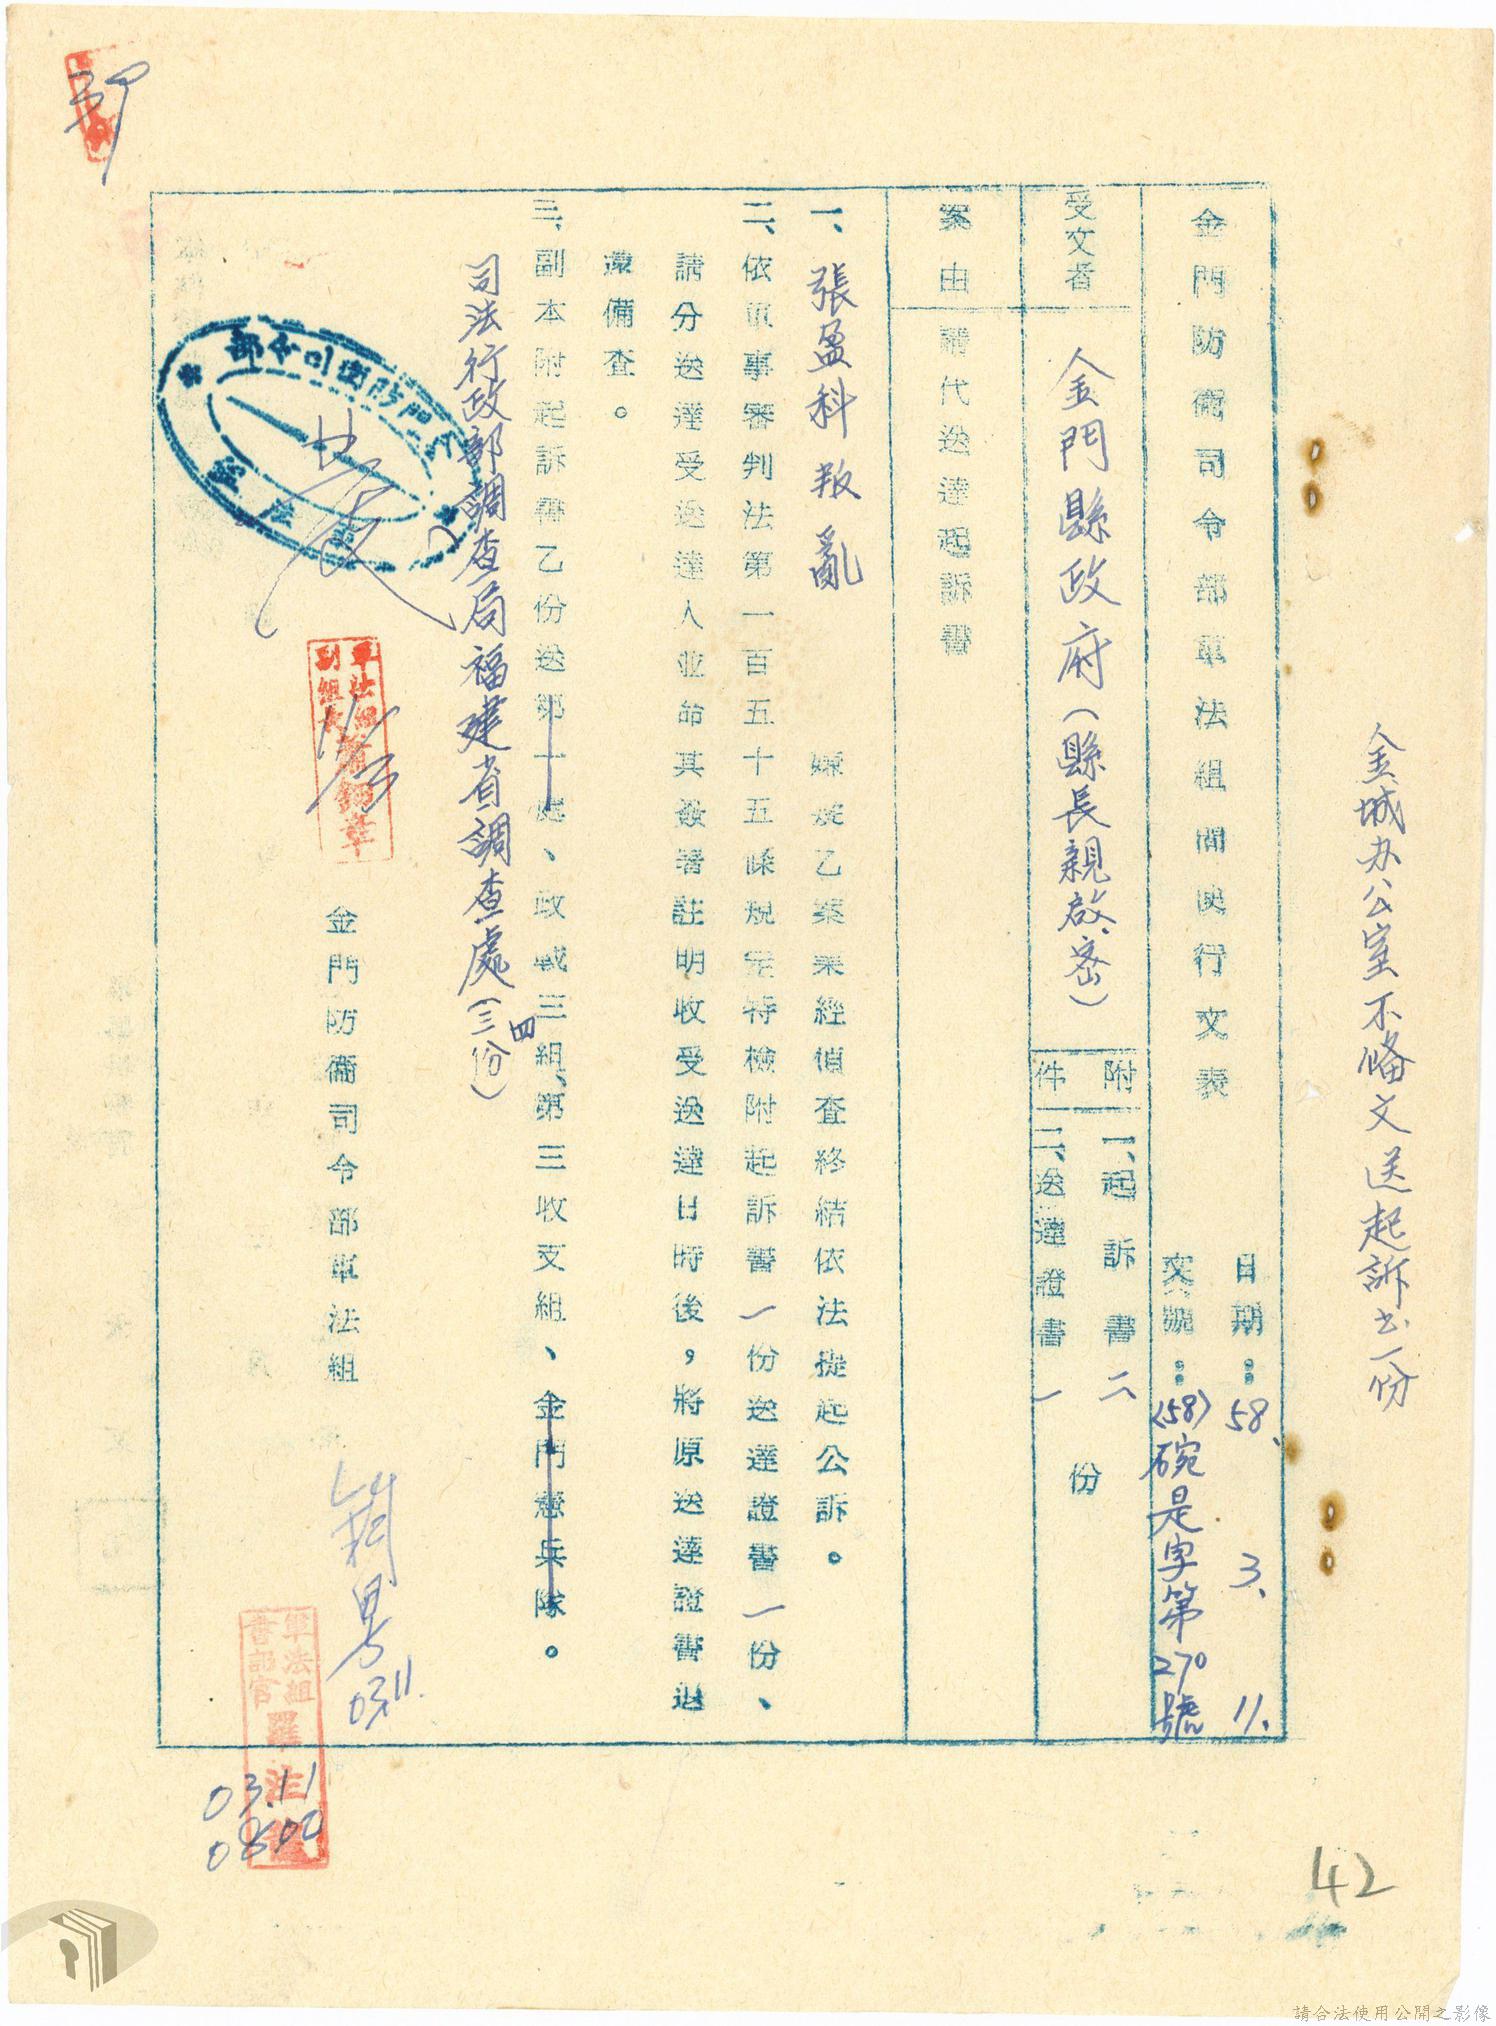 金城办公室不備文送起訴书一份
金門防衛司令部軍法組簡便行文表
日期：58.3.11.
文號：(58)碗是字第270號
受文者
金門縣政府(縣長親啟密)
附件
一、起訴書二
二、送達證書一
份
案由
請代送達起訴書
一、張盈科叛亂嫌疑乙案業經偵查終結依法提起公訴。
二、依軍事審判法第一百五十五條規定特檢附起訴書一份送達證書一份、
請分送達受送達人並命其簽署註明收受送達日時後，將原送達證書退
還備查。
三、副本附起訴書乙份送第一處、政戰三組、第三收支組、金門憲兵隊。
司法行政部調查局福建省調查處(三四份)
金門防衛司令部軍法組
金門防衛司令部
軍法組
軍法組
副組長
軍法組
書記官
羅
03.11
03.11
0800
42
請合法使用公開之影像